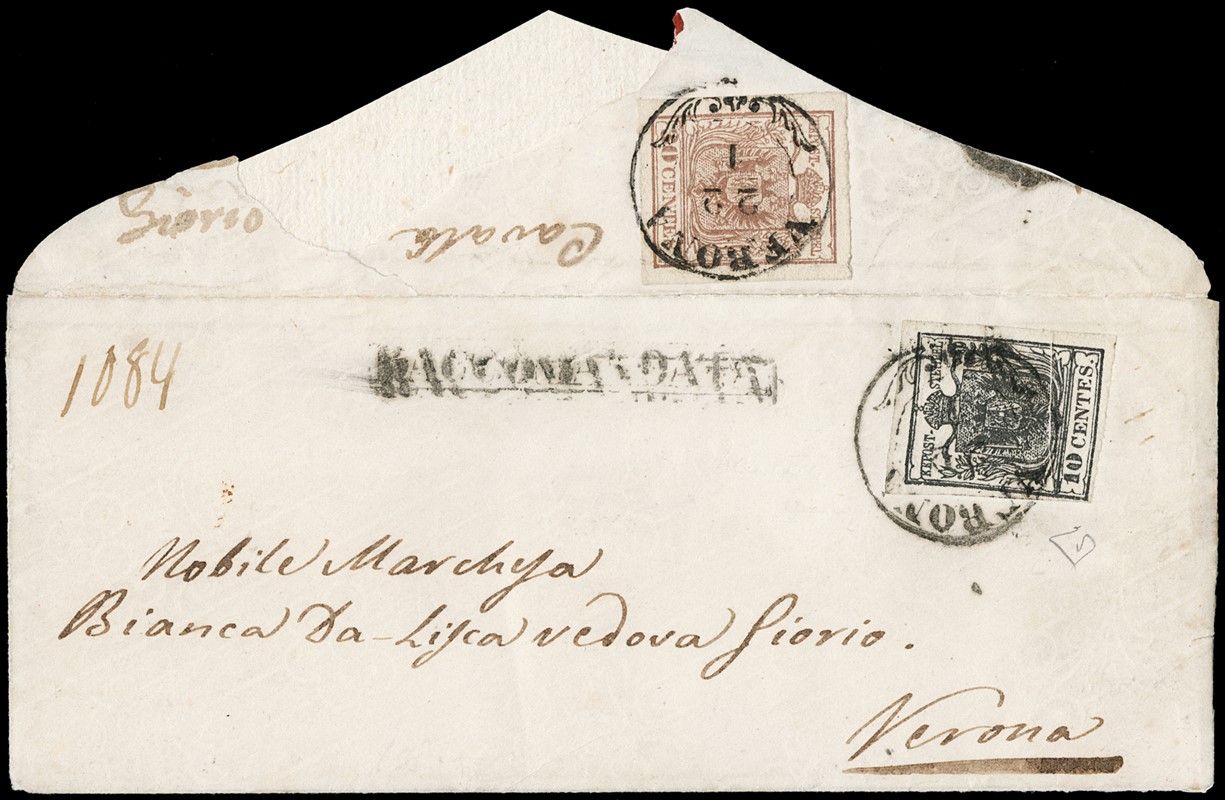 Giorio
Cavalla
30 CENTES.
VERONA
1
12
1084
RACCOMANDATA
KKPOST-STEMPEL
10 CENTES.
VERONA
Nobile Marchesa
Bianca Da-Lisca vedova Giorio.
Verona